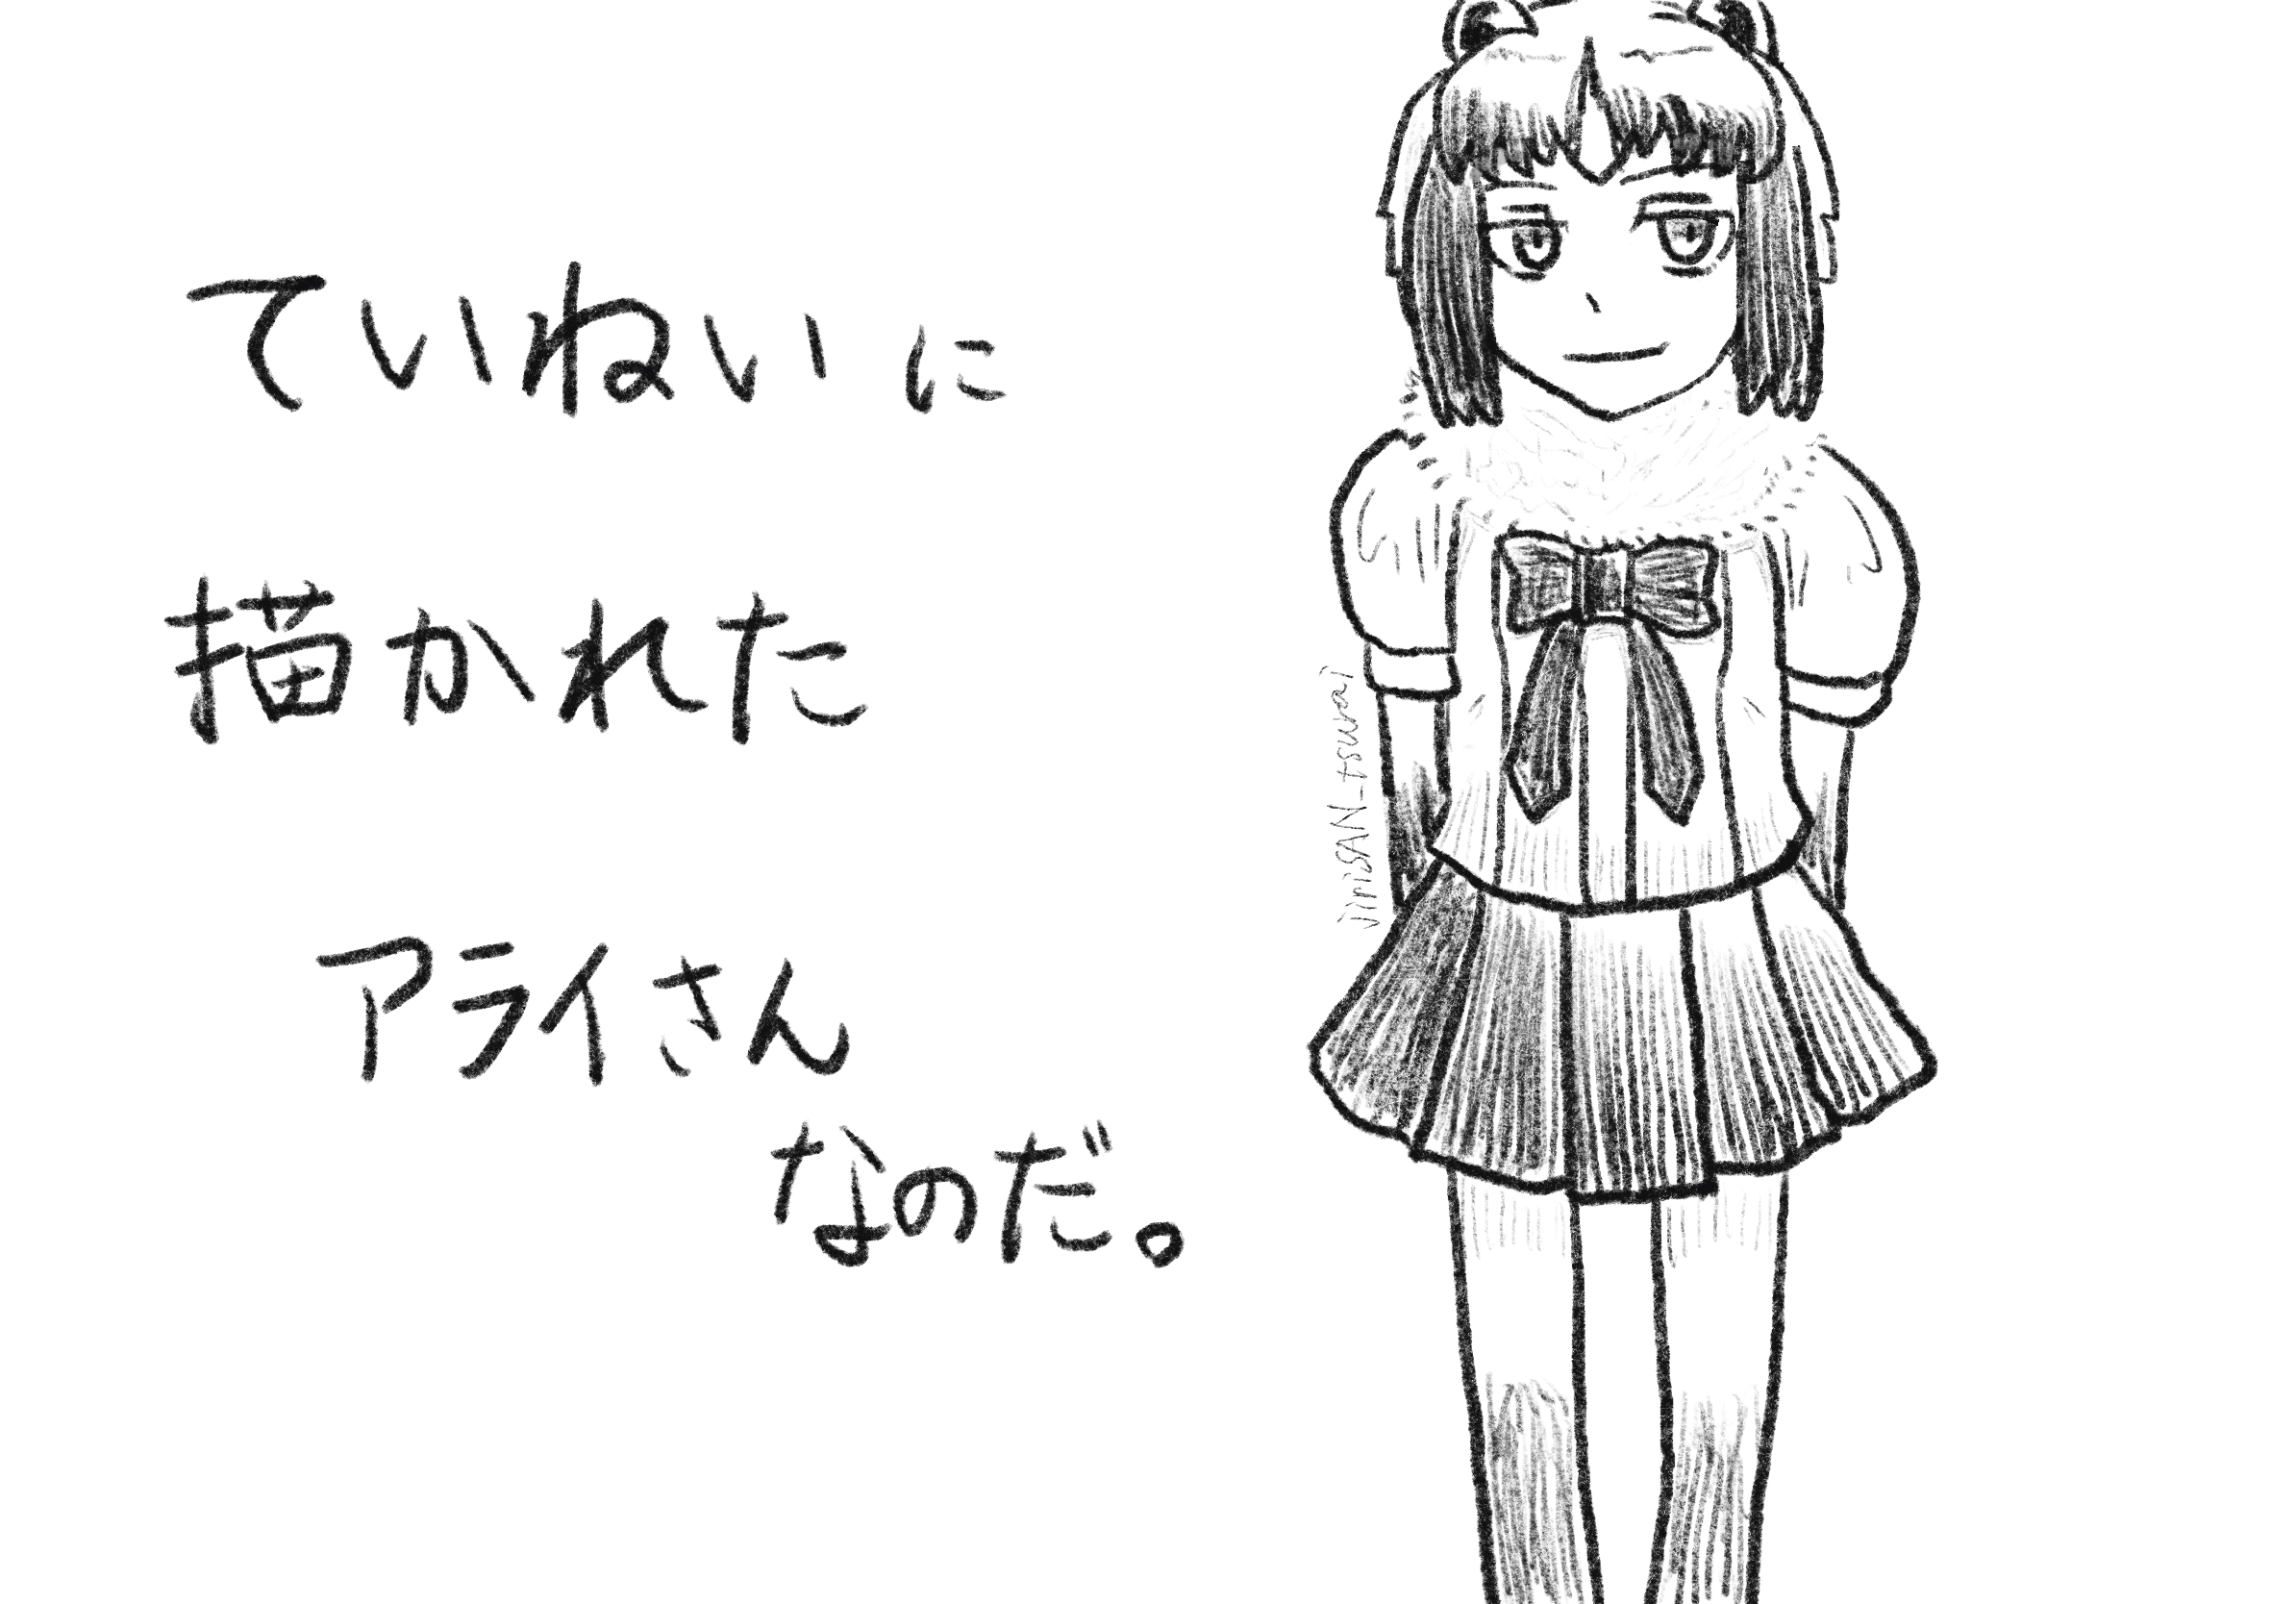 ていねいに
描かれた
アライさん
なのだ。
jiniSAN_tsurai